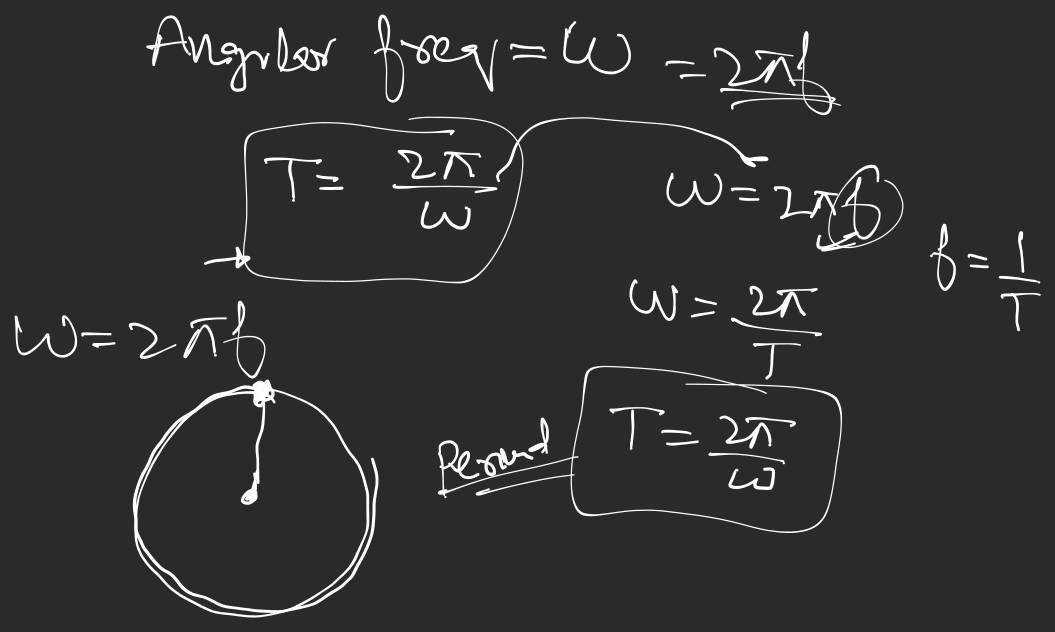 Angular freq = ω = 2πf
T = 2π/ω
ω = 2πf
f = 1/T
ω = 2π/T
ω = 2πf
Period T = 2π/ω